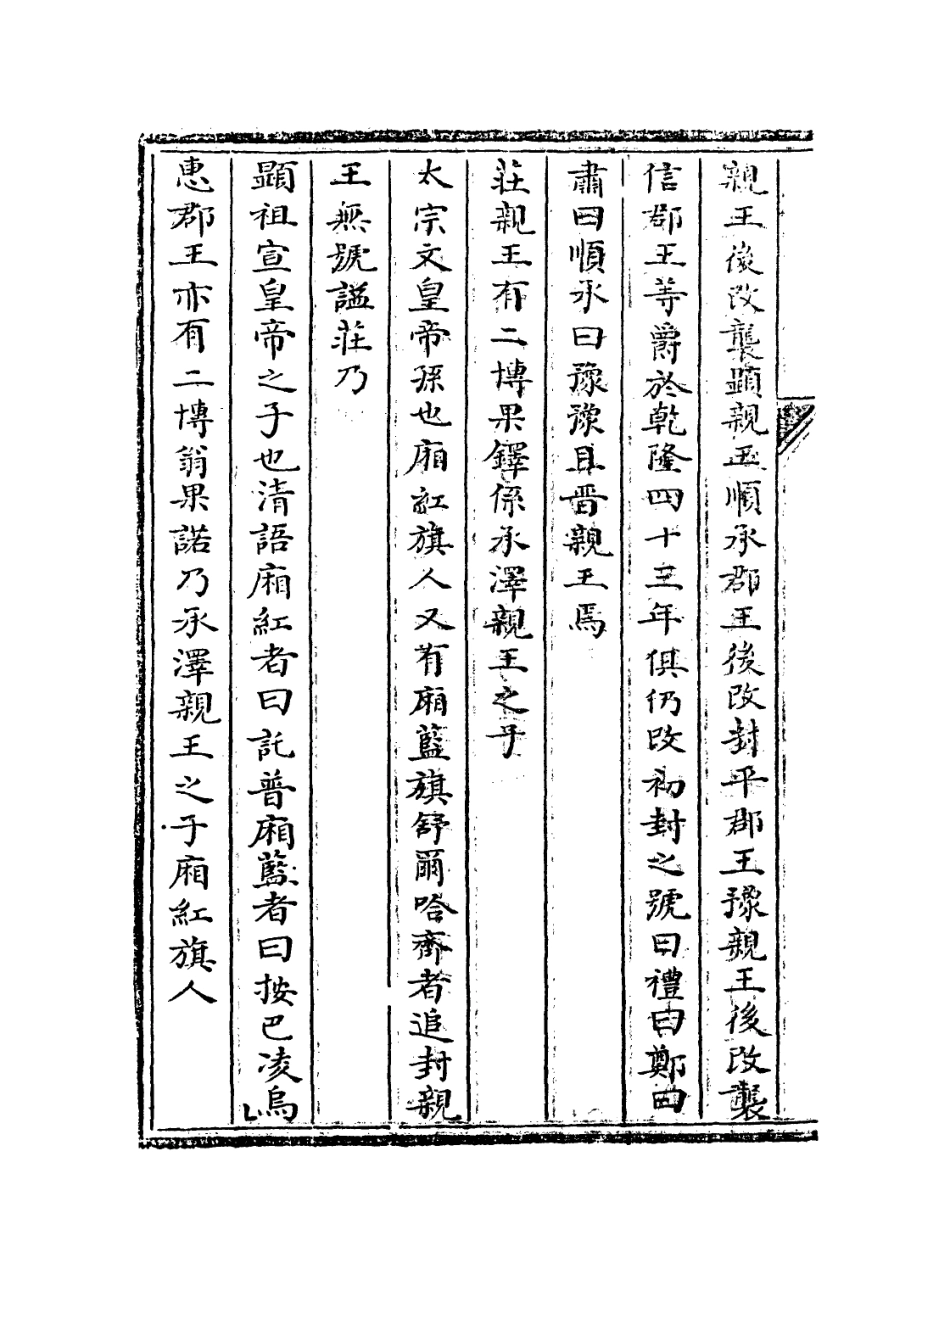 親王後改襲顯親王順承郡王後改封平郡王豫親王後改襲
信郡王等爵於乾隆四十三年俱仍改初封之號曰禮曰鄭曰
肅曰順承曰豫豫且晋親王焉
莊親王有二博果鐸係承澤親王之子
太宗文皇帝孫也廂紅旗人又有廂藍旗舒爾哈齊者追封親
王無號謚莊乃
顯祖宣皇帝之子也清語廂紅者曰託普廂藍者曰按巴凌烏
惠郡王亦有二博翁果諾乃承澤親王之子廂紅旗人